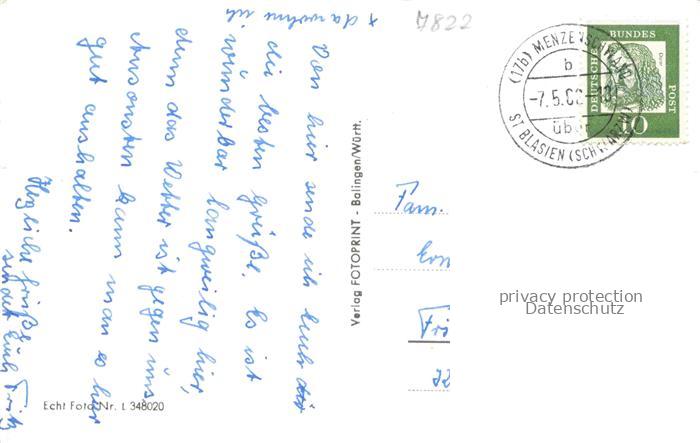 x da wohne ich
7822
Von hier sende ich Euch die
die besten Grüße. Es ist
wunderbar langweilig hier,
denn das Wetter ist gegen uns.
Ansonsten kann man es hier
gut aushalten.
Herzliche Grüße
sendet Euch Fritz
Echt Foto Nr. L 348020
Verlag FOTOPRINT - Balingen/Württ.
(17b) MENZENSCHWAND
b
-7.5.62
über
ST BLASIEN (SCHWARZW)
DEUTSCHE
BUNDES
POST
Dürer
10
Fam.
Fri
privacy protection
Datenschutz